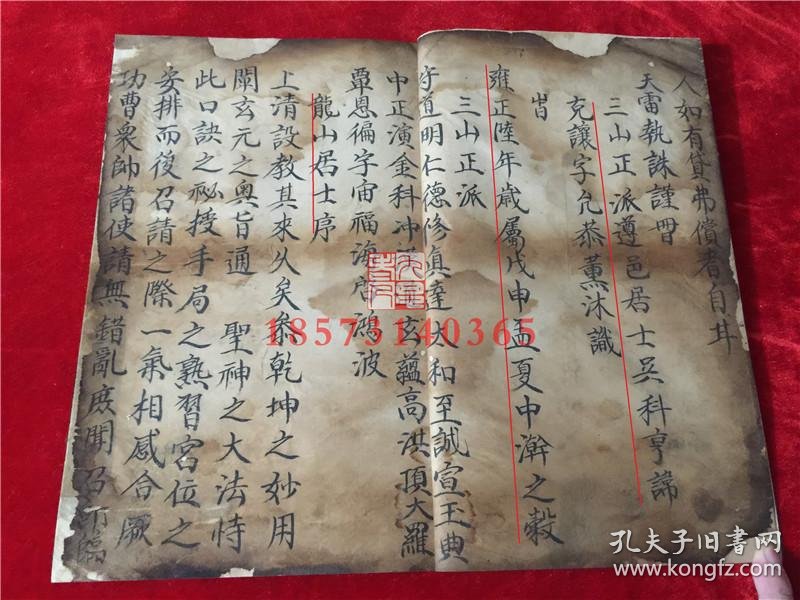 人如有貸弗償者自其
天雷執誅謹𠱷
三山正派遵邑居士吳科亨諱
克讓字允恭薰沐識
旹
雍正陸年歲屬戊申孟夏中澣之穀
三山正派
守道明仁德修真達太和至誠宣玉典
中正演金科冲 玄蘊高洪頂大羅
覃恩徧宇宙福海 鴻波
龍山居士序
上清設教其來久矣叅乾坤之妙用
闡玄元之奧旨通 聖神之大法恃
此口訣之祕授手局之熟習宮位之
安排而後召請之際一氣相感合厥
功曹衆帥諸使請無錯亂庶聞召而臨
18573140365
孔夫子旧书网
www.kongfz.com